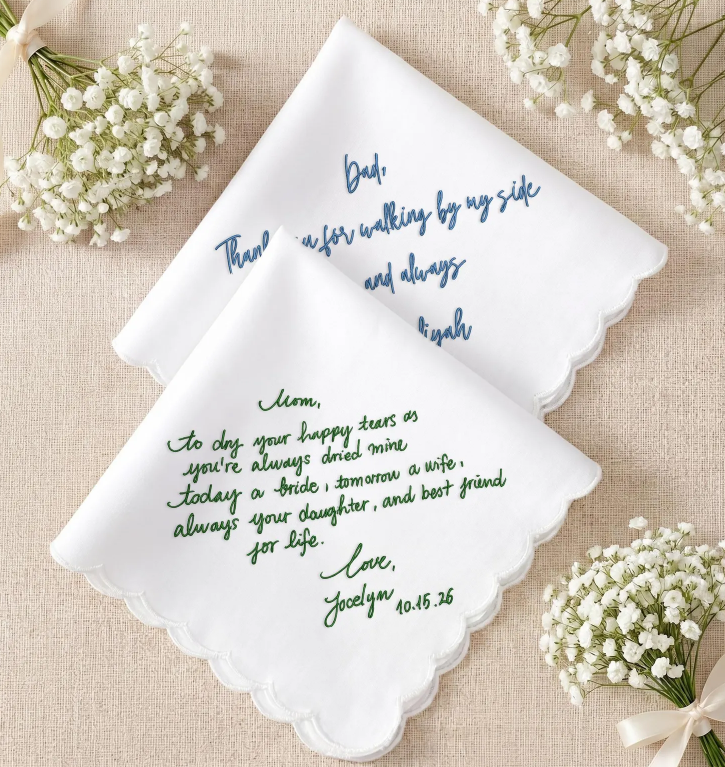 Dad,
for walking by my side
and always
Mom,
to dry your happy tears as
you're always dried mine
today a bride, tomorrow a wife,
always your daughter, and best friend
for life.
Love,
Jocelyn 10.15.26